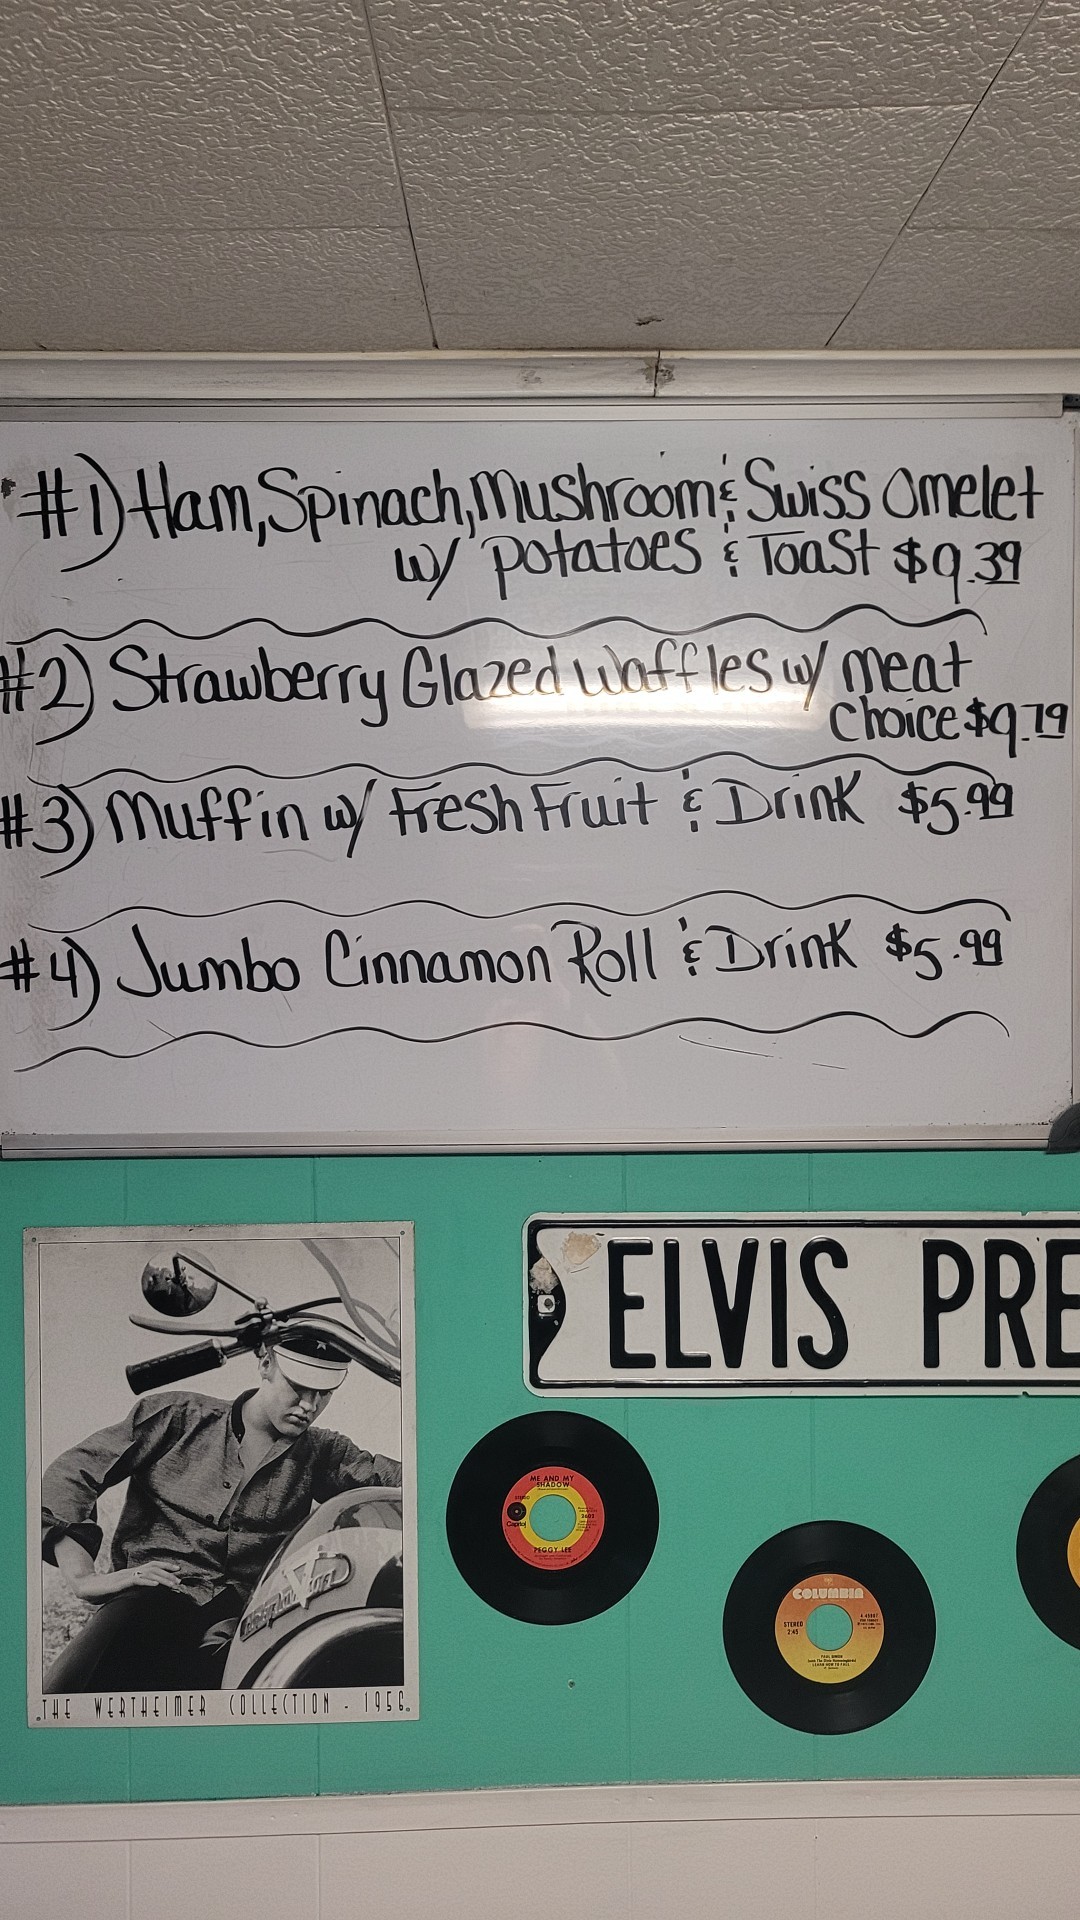 #1) Ham, Spinach, Mushroom & Swiss Omelet
w/ Potatoes & Toast $9.39
#2) Strawberry Glazed Waffles w/ meat
choice $9.79
#3) Muffin w/ Fresh Fruit & Drink $5.99
#4) Jumbo Cinnamon Roll & Drink $5.99
ELVIS PRE
THE WERTHEIMER COLLECTION - 1956
ME AND MY
SHADOW
STEREO
Capitol
PEGGY LEE
COLUMBIA
STEREO
2:45
PAUL SIMON
LEARN HOW TO FALL